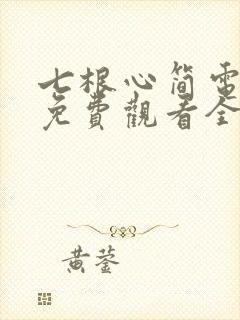 七根心简電
免費觀看全
黄蓥